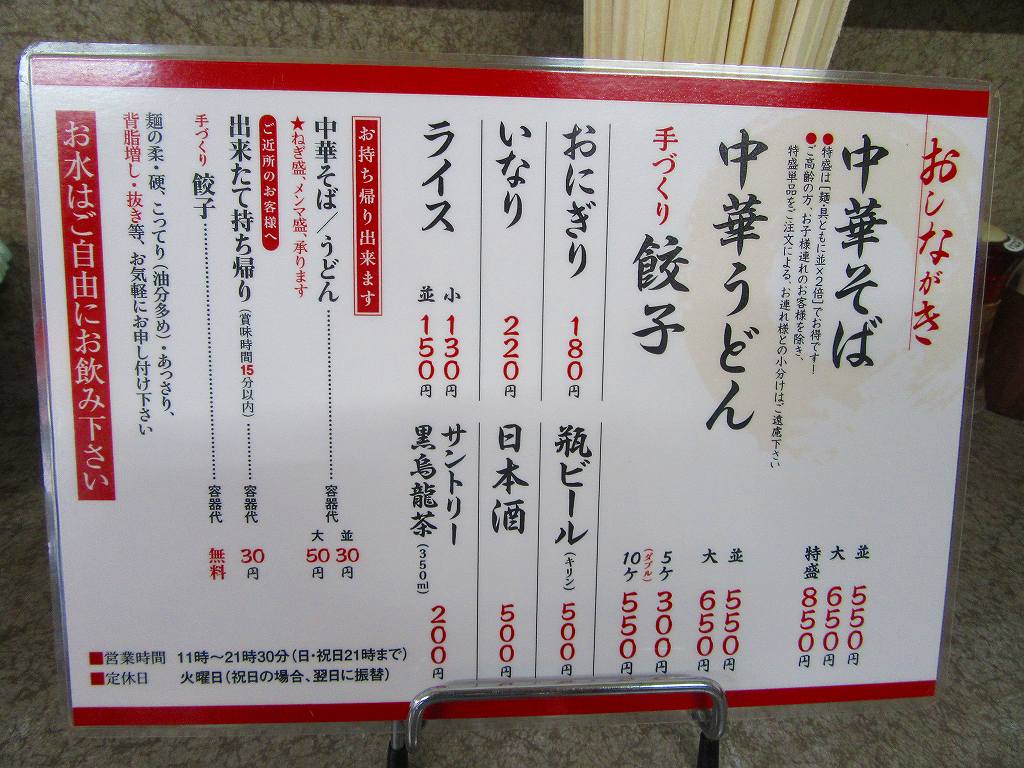 おしながき
中華そば
並 550円
大 650円
特盛 850円
●特盛は[麺・具ともに並×2倍]でお得です!
●ご高齢の方、お子様連れのお客様を除き、
特盛単品をご注文による、お連れ様との小分けはご遠慮下さい
中華うどん
並 550円
大 650円
手づくり 餃子
5ケ 300円
(ダブル)
10ケ 550円
おにぎり 180円
瓶ビール(キリン) 500円
いなり 220円
日本酒 500円
ライス
小 130円
並 150円
サントリー
黒烏龍茶(350ml) 200円
お持ち帰り出来ます
中華そば/うどん 容器代
並 30円
大 50円
★ねぎ盛、メンマ盛、承ります
ご近所のお客様へ
出来たて持ち帰り(賞味時間15分以内) 容器代 30円
手づくり 餃子 容器代 無料
麺の柔・硬、こってり(油分多め)・あっさり、
背脂増し・抜き等、お気軽にお申し付け下さい
お水はご自由にお飲み下さい
■営業時間 11時〜21時30分(日・祝日21時まで)
■定休日 火曜日(祝日の場合、翌日に振替)